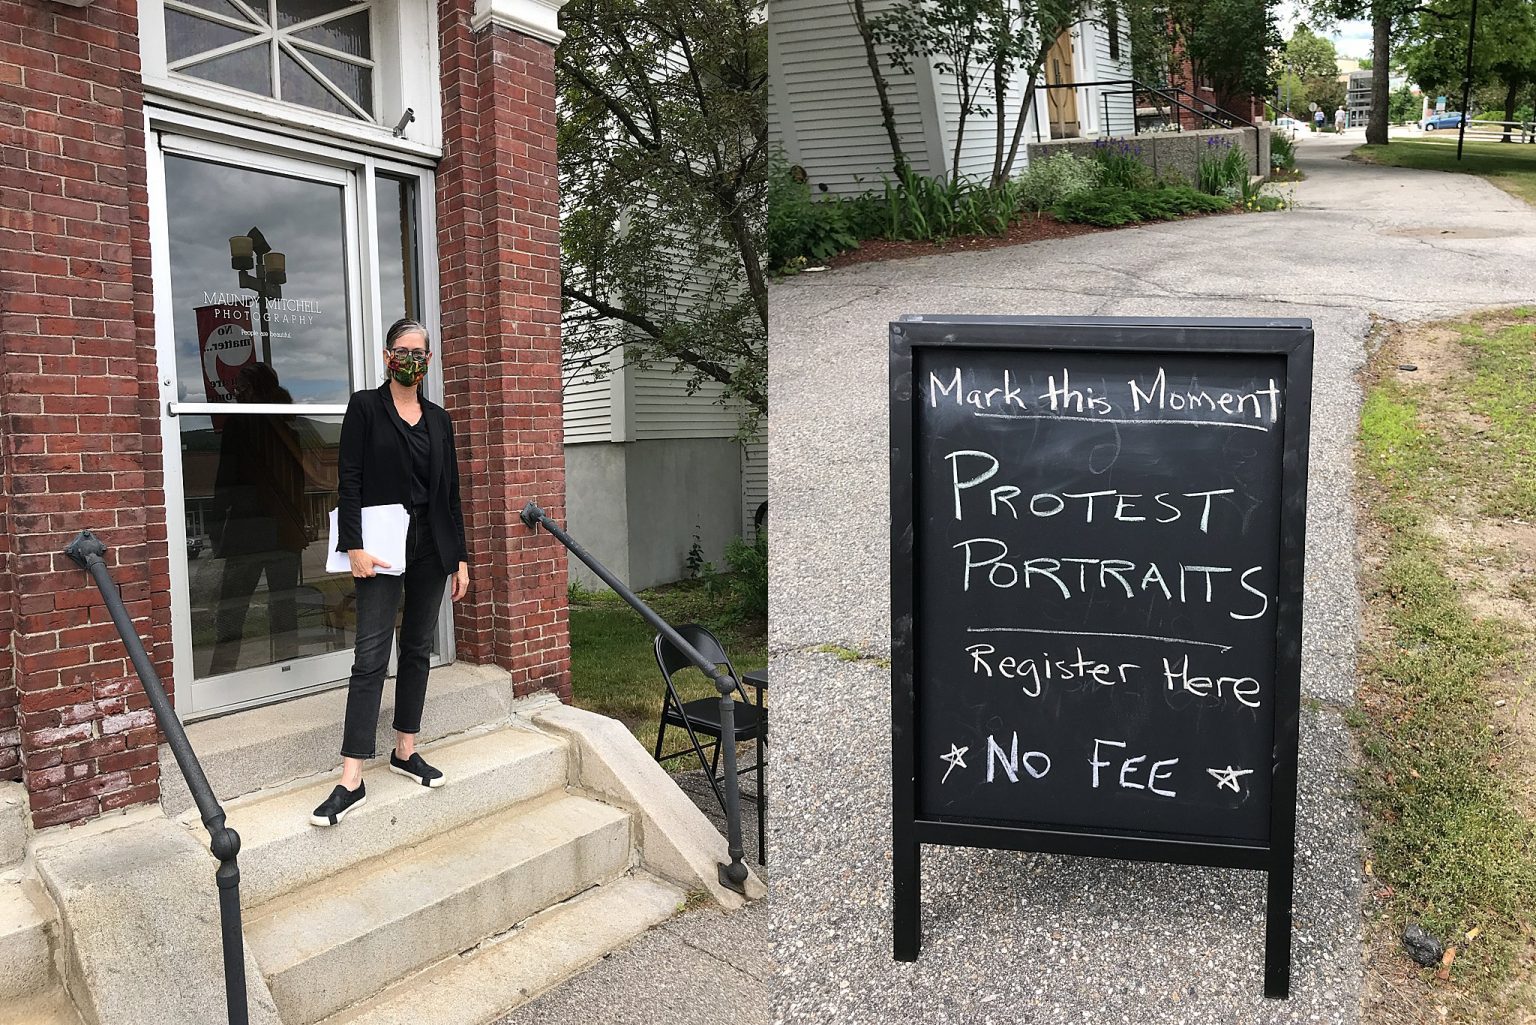 MAUNDY MITCHELL
PHOTOGRAPHY
People are beautiful.
No
matter...
Mark this Moment
PROTEST
PORTRAITS
Register Here
☆ NO FEE ☆